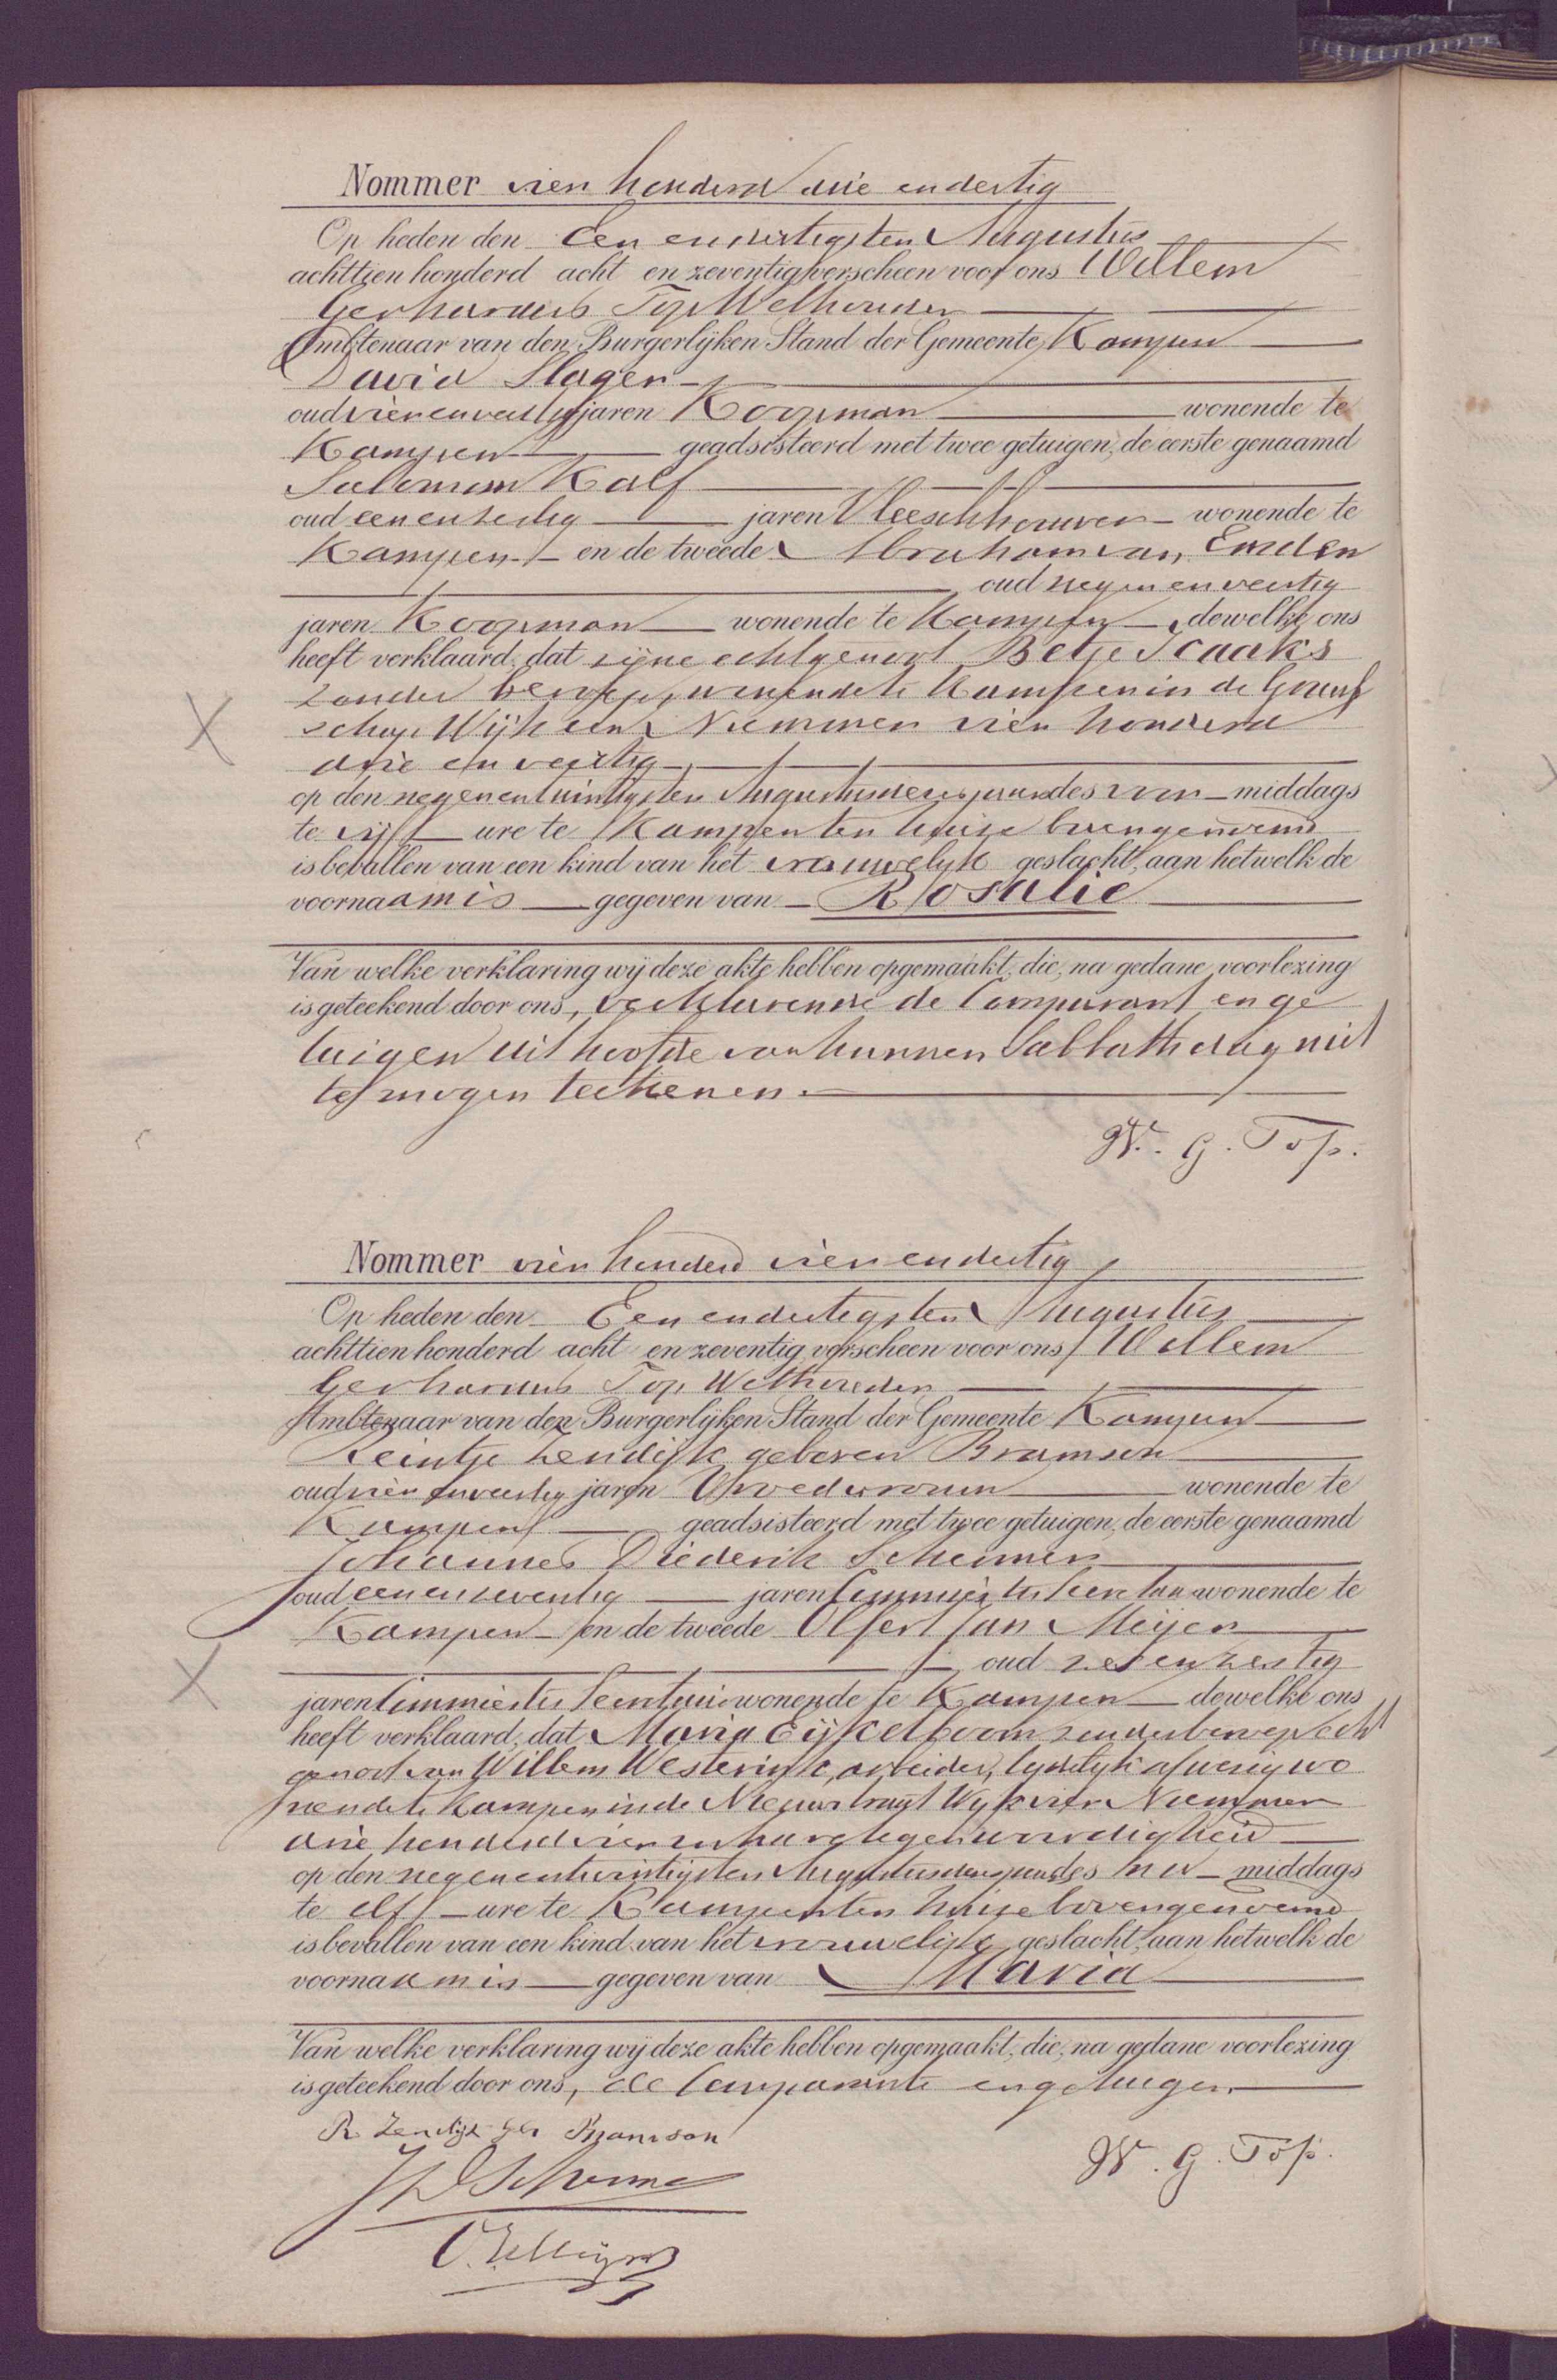 Nommer vier honderd drie en dertig
Op heden den Een en dertigsten Augustus
achttien honderd acht en zeventig verscheen voor ons Willem
Gerhardus Top Wethouder
Ambtenaar van den Burgerlijken Stand der Gemeente Kampen
David Slager
oud vier en veertig jaren Koopman wonende te
Kampen geadsisteerd met twee getuigen, de eerste genaamd
Salomon Kalf
oud een en sestig jaren Vleeschhouwer wonende te
Kampen en de tweede Abraham van Emden
oud negen en veertig
jaren Koopman wonende te Kampen, dewelke ons
heeft verklaard, dat zijne echtgenoot Betje Isaaks
zonder beroep, wonende te Kampen in de Graaf
schap Wijk een Nummer vier honderd
drie en veertig
op den negenentwintigsten Augustus dezes jaars des voor middags
te vijf ure te Kampen ten huize bovengenoemd
is bevallen van een kind van het vrouwelijk geslacht, aan hetwelk de
voornaam is gegeven van Rosalie
Van welke verklaring wij deze akte hebben opgemaakt, die, na gedane voorlezing
is geteekend door ons, verklarende de Comparant en ge
tuigen uit hoofde van hunnen Sabbathdag niet
te mogen teekenen.
W. G. Top.
Nommer vier honderd vier en dertig
Op heden den Een en dertigsten Augustus
achttien honderd acht en zeventig verscheen voor ons Willem
Gerhardus Top Wethouder
Ambtenaar van den Burgerlijken Stand der Gemeente Kampen
Reintje Zendijk geboren Bramson
oud vier en veertig jaren Vroedvrouw wonende te
Kampen geadsisteerd met twee getuigen, de eerste genaamd
Johannes Diederik Schurmer
oud een en zeventig jaren Commies ter Secretarie wonende te
Kampen en de tweede Olfert Jan Meijer
oud zes en zestig
jaren Commies ter Secretarie wonende te Kampen dewelke ons
heeft verklaard, dat Maria Eijkelboom zonder beroep echt
genoot van Willem Westerink, arbeider, tijdelijk afwezig wo
nende te Kampen in de Nieuwstraat Wijk vier Nummer
drie honderd vier in hare tegenwoordigheid
op den negenentwintigsten Augustus dezes jaars des na middags
te elf ure te Kampen ten huize bovengenoemd
is bevallen van een kind van het vrouwelijk geslacht, aan hetwelk de
voornaam is gegeven van Maria
Van welke verklaring wij deze akte hebben opgemaakt, die, na gedane voorlezing
is geteekend door ons, de Comparante en getuigen
R Zendijk geb Bramson
W. G. Top.
O. J. Meijer